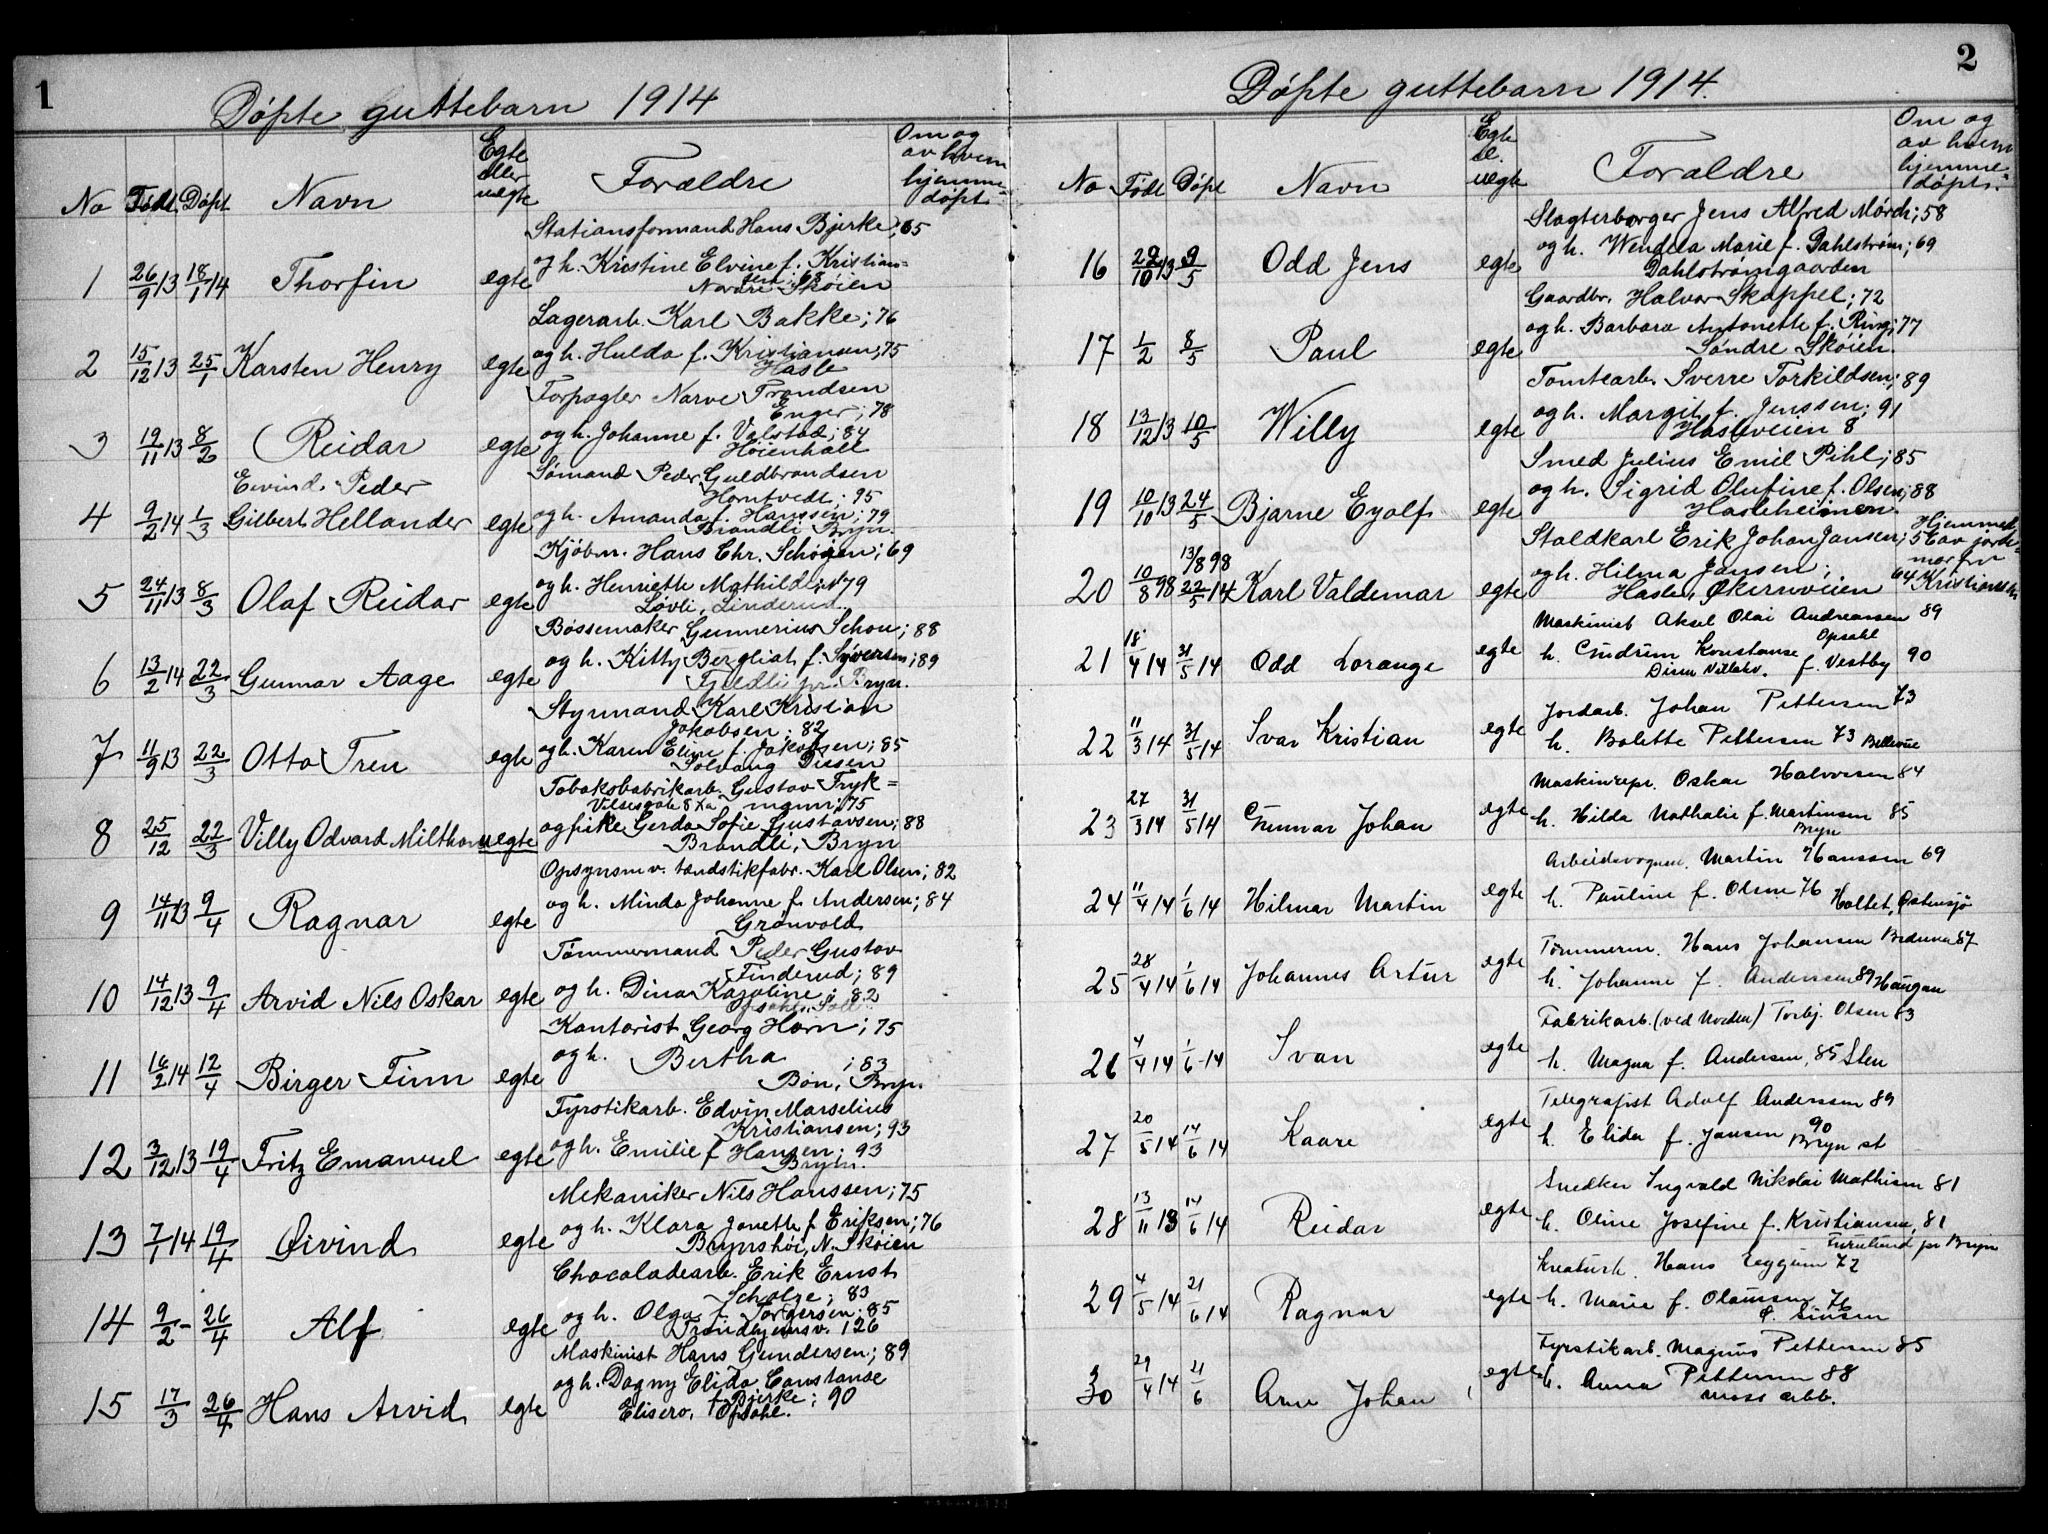 1
Døpte guttebarn 1914
No Født Døpt Navn Egte eller uegte Forældre Om og av hvem hjemme-døpt.
Stationsformand Hans Bjerke; 65
1 26/9 13 18/1 14 Thorfin egte og h. Kristine Elvine f. Kristian-
sen; 68
Nordre Skøien
Lagerarb. Karl Bakke; 76
2 15/12 13 25/1 Karsten Henry egte og h. Hulda f. Kristiansen; 75
Hasle
Forpagter Narve Trondsen
Enger; 78
3 19/11 13 8/2 Reidar egte og h. Johanne f. Valstad; 84
Høienhall
Sømand Peder Guldbrandsen
Horntvedt; 95
4 9/2 14 1/3 Eivind Peder
Gilbert Hellander egte og h. Amanda f. Hanssen; 79
Brandli Bryn.
Kjøbm. Hans Chr. Schøyen; 69
5 24/11 13 8/3 Olaf Reidar egte og h. Henriette Mathilde; 79
Løvli, Linderud.
Bøssemaker Gunnerius Schou; 88
6 13/2 14 22/3 Gunnar Aage egte og h. Kitty Bergliot f. Syversen; 89
Fjeldli pr. Bryn.
Styrmand Karl Kristian
Jakobsen; 82
7 11/9 13 22/3 Otto Tren egte og h. Karen Eline f. Jakobsen; 85
Solvang Disen
Tobaksfabrikarb. Gustav Fryk-
mann; 75
8 25/12 22/3 Villy Odvard Milthon uegte og pike Gerda Sofie Gustavsen; 88
Brandli, Bryn
Opsynsm v. tændstikfabr. Karl Olsen; 82
9 14/11 13 9/4 Ragnar egte og h. Minda Johanne f. Andersen; 84
Grønvold
Tømmermand Peder Gustav
Finderud; 89
10 14/12 13 9/4 Arvid Nils Oskar egte og h. Dina Karoline; 82
Kontorist Georg Horn; 75
11 16/2 14 12/4 Birger Finn egte og h. Bertha ; 83
Bøn, Bryn.
Fyrstikarb. Edvin Marselius
Kristiansen; 93
12 3/12 13 19/4 Fritz Emanuel egte og h. Emilie f Hansen; 93
Bryn.
Mekaniker Nils Hanssen; 75
13 7/1 14 19/4 Øivind egte og h. Klara Jonette f Eriksen; 76
Brynshøi, N. Skøien
Chocoladearb. Erik Ernst
Scholze; 83
14 9/2 - 26/4 Alf egte og h. Olga f Torgersen; 85
Trondhjemsv. 126
Maskinist Hans Gundersen; 89
15 17/3 26/4 Hans Arvid egte og h. Dagny Elida Constanse
f Bjerke; 90
Elisero, Opsahl.
2
Døpte guttebarn 1914.
No Født Døpt Navn Egte el. uegte Forældre Om og av hvem hjemme-døpt.
Slagterborger Jens Alfred Mörch; 58
16 29/10 13 9/5 Odd Jens egte og h. Wendela Marie f. Dahlstrøm; 69
Dahlstrømgaarden
Gaardbr. Halvor Skappel; 72
17 1/2 8/5 Paul egte og h. Barbara Antonette f. Ring; 77
Søndre Skøien.
Tomtearb. Sverre Torkildsen; 89
18 13/12 13 10/5 Willy egte og h. Margit f. Jenssen; 91
Hasleveien 8
Smed Julius Emil Pihl; 85
19 10/10 13 24/5 Bjarne Eyolf egte og h. Sigrid Olufine f. Olsen; 88
Hasleheimen.
Staldkarl Erik Johan Jansen; 5
20 10/8 98 13/8 98 22/5 14 Karl Valdemar egte og h. Hilma Jansen; 64
Hasle, Økernveien
Maskinist Aksel Olai Andreassen 89
21 18/4 14 31/5 14 Odd Lorange egte h. Gudrun Konstanse f. Vestby 90
Opsahl
Jordarb. Johan Pettersen 73
22 11/3 14 31/5 14 Ivar Kristian egte h. Bolette Pettersen 73 Bellevue
Maskinrepr. Oskar Halvorsen 84
23 27/3 14 31/5 14 Gunnar Johan egte h. Hilda Nathalie f. Martinsen 85
Bryn
Martin Hanssen 69
24 11/4 14 1/6 14 Hilmar Martin egte h. Pauline f. Olsen 76 Holtet, Østensjø
Tømmerm. Hans Johansen 87
25 28/4 14 1/6 14 Johannes Artur egte h. Johanne f. Anderssen 89 Haugen
Fabrikarb. (ved Noden) Torbj. Olsen 83
26 4/4 14 1/6 14 Ivan egte h. Magna f. Andersen, 85
Telegrafist Adolf Anderssen 89
27 20/5 14 14/6 14 Kaare egte h. Elida f. Jansen 90
Bryn st
Snedker Ingvald Nikolai Mathisen 81
28 13/11 13 14/6 14 Reidar egte h. Oline Josefine f. Kristiansen, 81
Furulund pr Bryn
Kreaturh. Hans Eggum 72
29 4/5 14 21/6 14 Ragnar egte h. Marie f. Olaussen 76
Ø. Sinsen
Fyrstikarb. Magnus Pettersen 85
30 29/4 14 21/6 Arne Johan egte h. Anna Pettersen 88